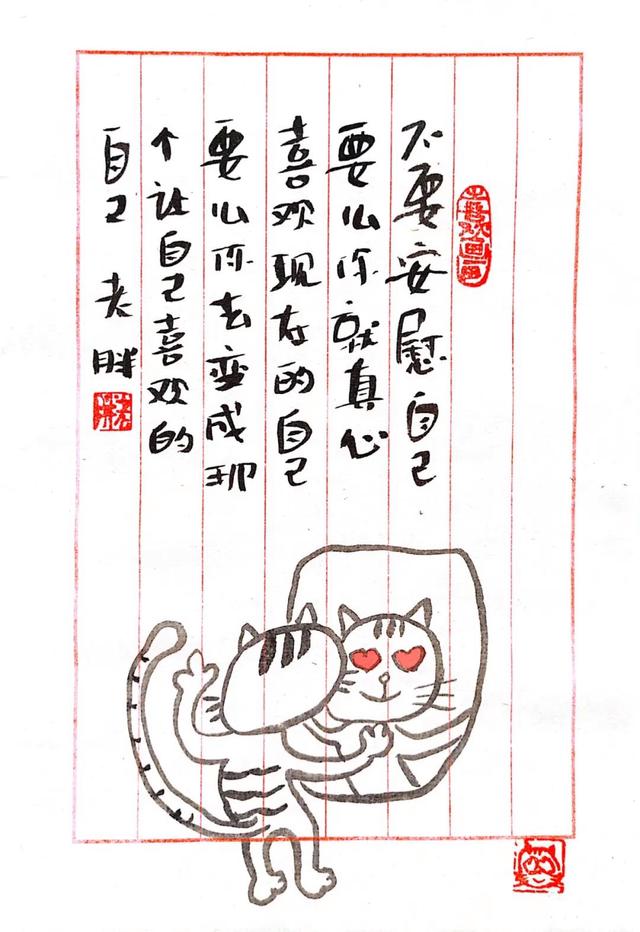 不要安慰自己
要么你就真心
喜欢现在的自己
要么你去变成那
个让自己喜欢的
自己 老胖